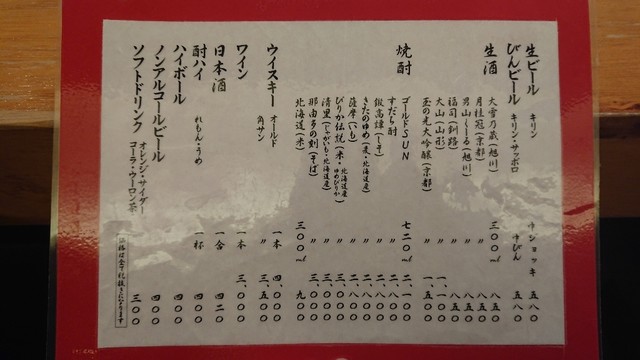 生ビール キリン 中ジョッキ 五八〇
びんビール キリン・サッポロ 中びん 五八〇
生酒 大雪乃蔵(旭川) 三〇〇ml 八五〇
月桂冠(京都) 〃 八五〇
男山しぼる(旭川) 〃 八五〇
福司(釧路) 〃 八五〇
大山(山形) 〃 一、一〇〇
玉の光大吟醸(京都) 〃 一、五〇〇
焼酎 ゴールドSUN 七二〇ml 二、一〇〇
すだち酎 〃 二、〇〇〇
鍛高譚(しそ) 〃 二、〇〇〇
きたのゆめ(麦・北海道産) 〃 二、八〇〇
薩摩(いも) 〃 二、八〇〇
ぴりか伝説(米・北海道産ゆめぴりか) 〃 三、〇〇〇
清里(じゃがいも・北海道産) 〃 三、〇〇〇
那由多の刻(そば) 〃 三、〇〇〇
北海道(米) 三〇〇ml 九〇〇
ウイスキー オールド 一本 四、〇〇〇
角サン 〃 三、五〇〇
ワイン 一本 三、〇〇〇
日本酒 一合 四二〇
酎ハイ れもん・うめ 一杯 四〇〇
ハイボール 四〇〇
ノンアルコールビール 四〇〇
ソフトドリンク オレンジ・サイダー コーラ・ウーロン茶 三〇〇
価格は全て税抜きになります